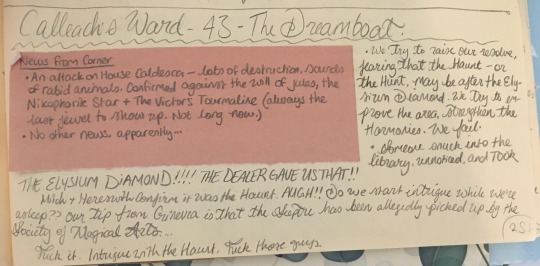 Calleach's Ward - 43 - The Dreamboat.
News From Corner
• An attack on House Caldesca - lots of destruction, sounds
of rabid animals. Confirmed against the will of Jules, the
Nikophorik Star + The Victor's Tourmaline (always the
last jewel to show up. Not long now.)
• No other news. apparently...
• We try to raise our resolve,
fearing that the Haunt - or
the Hunt, may be after the Ely-
sium Diamond. We try to im-
prove the area, strengthen the
Harmonies. We fail.
• Someone snuck into the
library, unnoticed, and TOOK
THE ELYSIUM DIAMOND!!!! THE DEALER GAVE US THAT!!
Mich + Hereswith confirm it was the Haunt. AUGH!! Do we start intrigue while we're
asleep?? Our tip from Ginevra is that the has been allegedly picked up by the
Society of Magical Arts...
Fuck it. Intrigue with the Haunt. Fuck those guys.